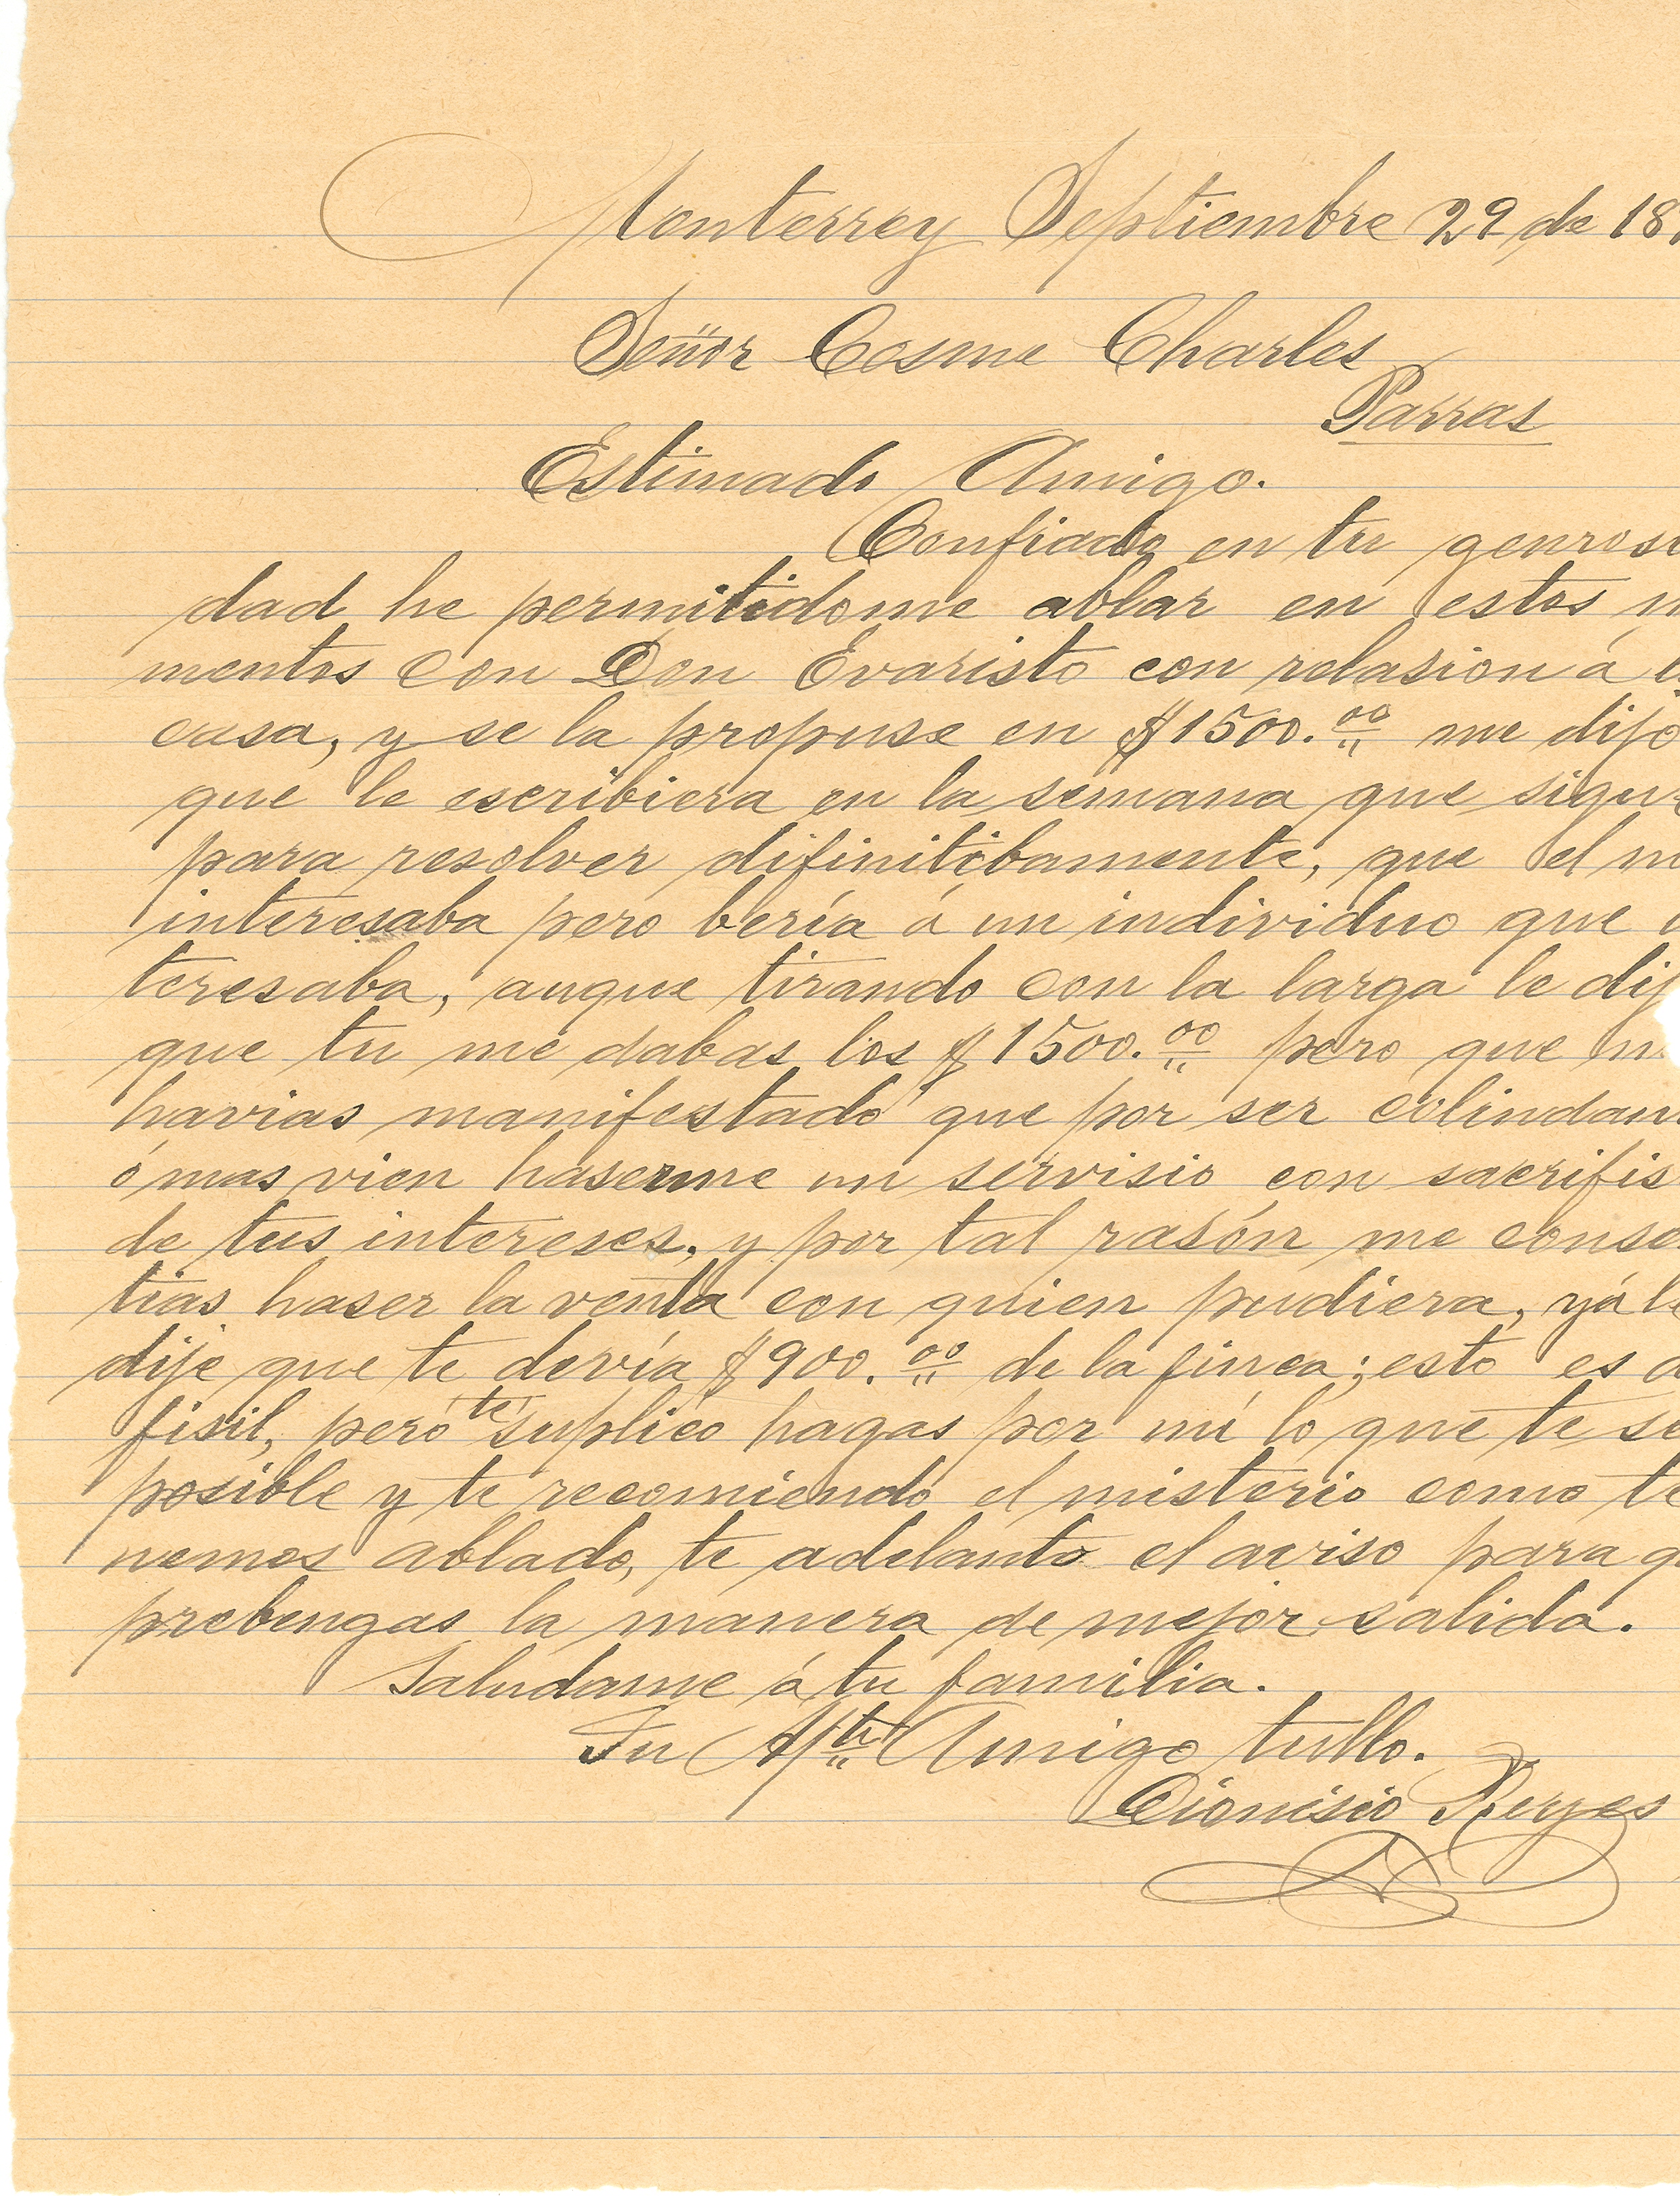 Monterrey Septiembre 29 de 18
Señor Cosme Charles
Parras
Estimado Amigo.
Confiado en tu genrosi
dad he permitidome ablar en estos m
mentos con Don Evaristo con relasion á
casa, y se la propuse en $1500.00 me dijo
que le escribiera en la semana que sigue
para resolver difinitibamente, que el n
interesaba pero bería á un individuo que
teresaba, auque tirando con la larga le dij
que tu me dabas los $1500.00 pero que m
havias manifestado que por ser colindan
ó mas vien haserme un servisio con sacrifis
de tus intereses, y por tal rasón me conse
tias haser la venta con quien pudiera, yá le
dije que te devía $900.00 de la finca; esto es d
fisil, pero te suplico hagas por mí lo que te se
posible y te recomiendo el misterio como te
nemos ablado, te adelanto el aviso para q
prebengas la manera de mejor salida.
Saludame á tu familia.
Tu Afto Amigo tullo.
Dionisio Reyes